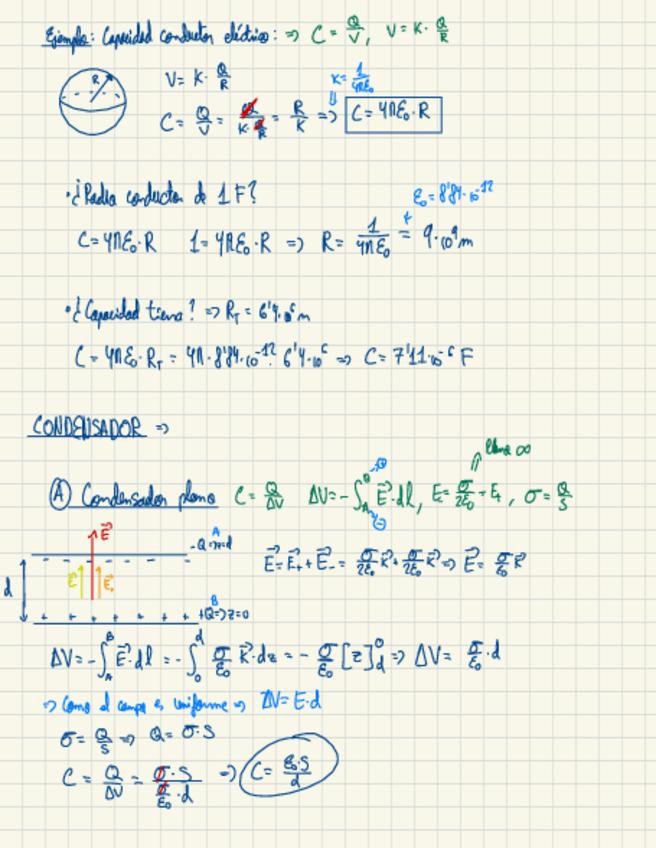 Ejemplo: Capacidad conductor eléctrico: => C = Q/V, V = K · Q/R
R
V = K · Q/R
K = 1/4πε₀
C = Q/V = Q/(K · Q/R) = R/K => C = 4πε₀ · R
· ¿Radio conductor de 1 F?
ε₀ = 8'84·10⁻¹²
C = 4πε₀ · R 1 = 4πε₀ · R => R = 1/4πε₀ = 9·10⁹ m
· ¿Capacidad tierra? => R_T = 6'4·10⁶ m
C = 4πε₀ · R_T = 4π · 8'84·10⁻¹² · 6'4·10⁶ => C = 7'11·10⁻⁶ F
CONDENSADOR =>
plano ∞
Ⓐ Condensador plano C = Q/ΔV ΔV = -∫_A^B E⃗·dl, E = σ/2ε₀ = E₊, σ = Q/S
⊕
⊖
E⃗
A
-Q => z=d
d
E⃗ E⃗
E⃗ = E⃗₊ + E⃗₋ = σ/2ε₀ K⃗ + σ/2ε₀ K⃗ => E⃗ = σ/ε₀ K⃗
B
+Q => z=0
ΔV = -∫_A^B E⃗·dl = -∫_0^d σ/ε₀ K⃗·dz = - σ/ε₀ [z]_d^0 => ΔV = σ/ε₀ · d
=> Como el campo es uniforme => ΔV = E·d
σ = Q/S => Q = σ·S
C = Q/ΔV = σ·S/(σ/ε₀ · d) => C = ε₀·S/d